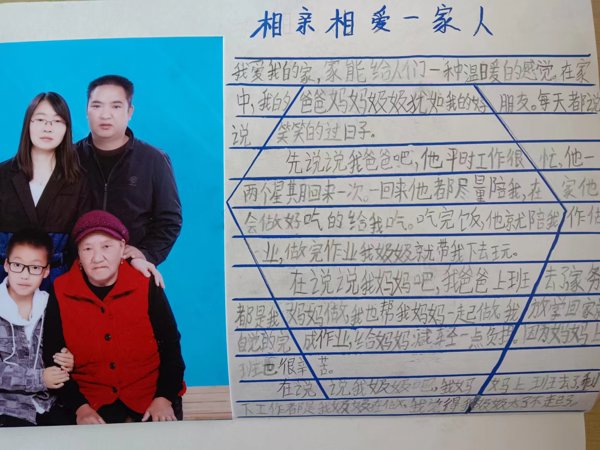 相亲相爱一家人
我爱我的家,家能给人们一种温暖的感觉。在家
中,我的爸爸妈妈奶奶犹如我的好朋友。每天都说
说笑笑的过日子。
先说说我爸爸吧,他平时工作很忙,他一
两个星期回来一次。一回来他都尽量陪我,在家他
会做好吃的给我吃。吃完饭,他就陪我作作
业,做完作业我奶奶就带我下去玩。
在说说我妈妈吧,我爸爸上班去了家务
都是我妈妈做,我也帮我妈妈一起做。我放学回家
自觉的完成作业,给妈妈减一点负担。因为妈妈上
班也很辛苦。
在说说我奶奶吧。我妈妈上班去了,
下工作都是我奶奶在做,我觉得奶奶太了不起了